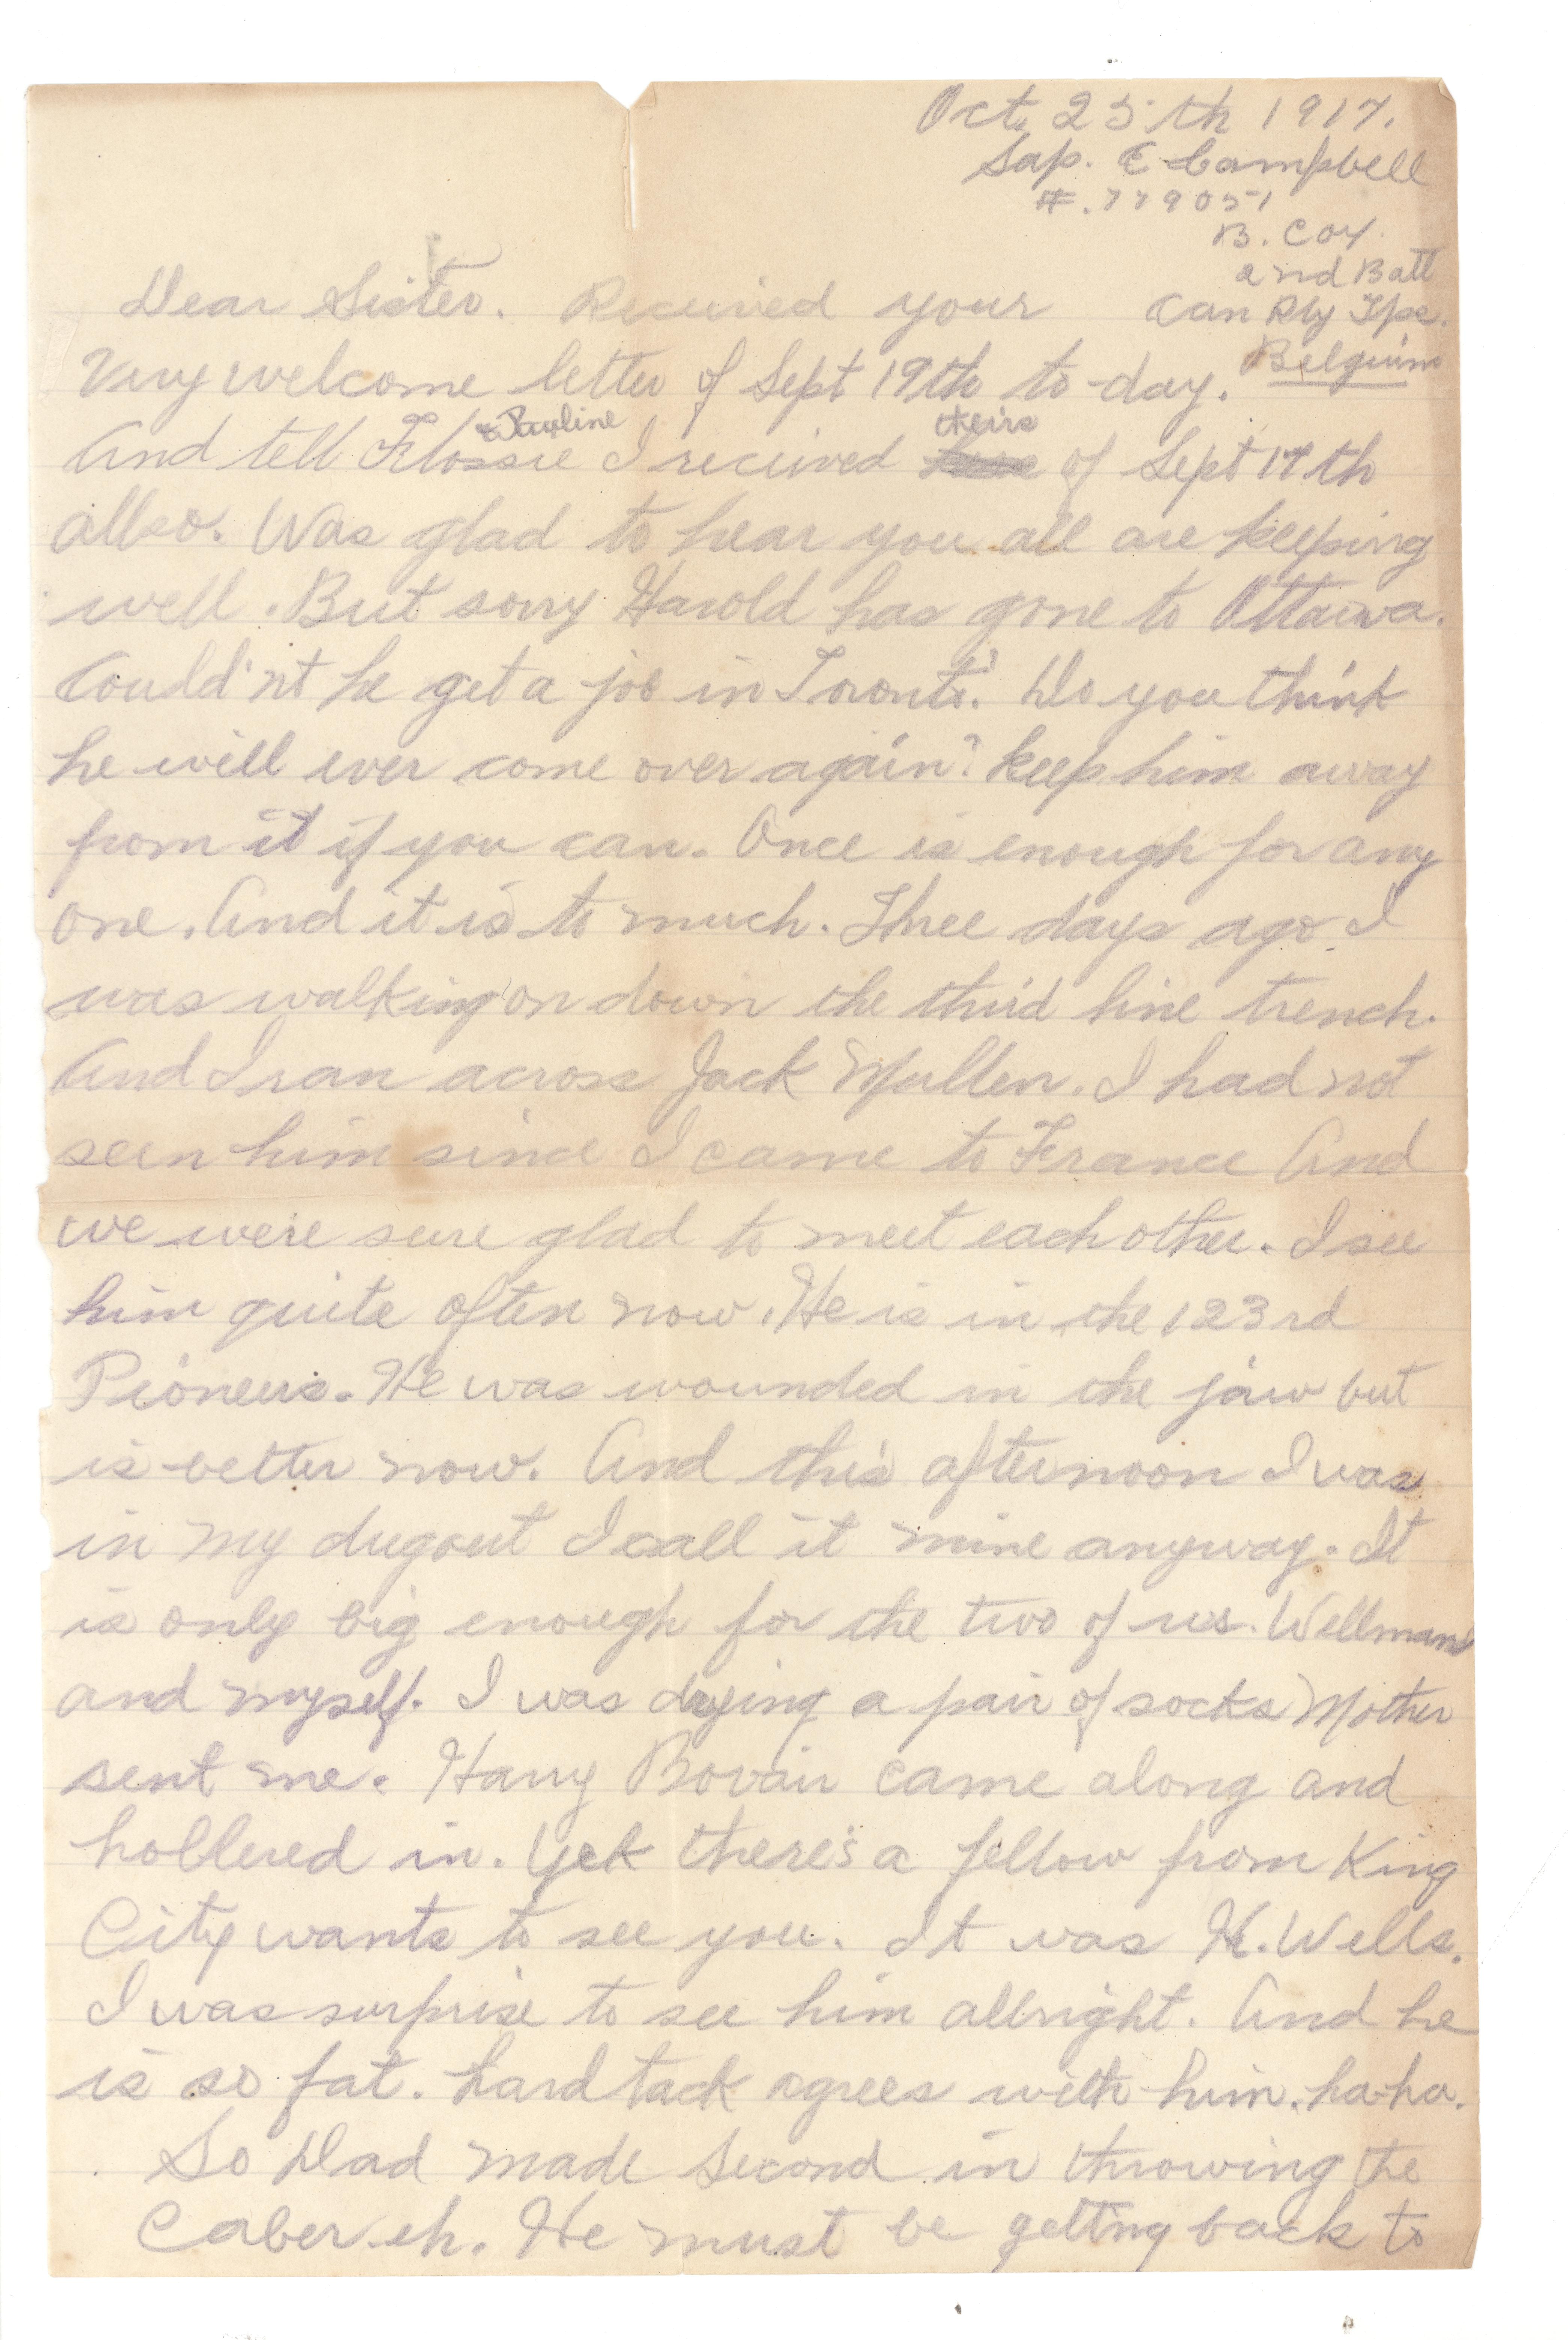 Oct. 25th 1917.
Sap. E Campbell
#. 779051
B. Coy.
2nd Batt
Can Rly Tps.
Belguim
Dear Sister. Received your
Very welcome letter of Sept 19th to-day.
& Pauline theirs
And tell Flossie I recieved of Sept 17th
allso. Was glad to hear you all are keeping
well. But sorry Harold has gone to Ottawa.
Could'nt he get a job in Toronto? Do you think
he will ever come over again? keep him away
from it if you can. Once is enough for any
one. And it is to much. Three days ago I
was walking on down the third line trench.
And I ran across Jack Mullen. I had not
seen him since I came to France And
we were sure glad to meet each other. I see
him quite often now. He is in the 123rd
Pioneers. He was wounded in the jaw but
is better now. And this afternoon I was
in my dugout I call it mine anyway. It
is only big enough for the two of us. Wellman
and myself. I was drying a pair of socks Mother
sent me. Harry Bovair came along and
hollered in. Yek there's a fellow from King
City wants to see you. It was H. Wells.
I was surprise to see him allright. And he
is so fat. hard tack agrees with him. ha-ha.
So Dad made second in throwing the
Caber eh. He must be getting back to